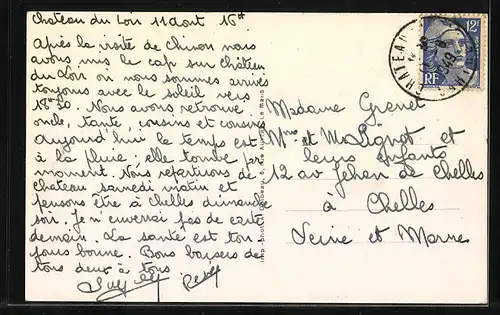 Chateau du Loir 11 Aout 16h
Après la visite de Chinon nous
avons mis le cap sur Château
du Loir ou nous sommes arrivés
toujours avec le soleil vers
18h30. Nous avons retrouvé
oncle, tante, cousins et cousines
aujourd'hui le temps est
à la pluie; elle tombe par
moment. Nous repartirons de
chateau samedi matin et
pensons être à Chelles dimanche
soir. Je n'enverrai pas de carte
demain. La santé est tou
jours bonne. Bons baisers de
tous deux à tous
Madame Grenet
Mme et M Lignot et
leurs enfants
12 av Jehan de Chelles
à Chelles
Seine et Marne
12F
RF
CHATEAU
1949